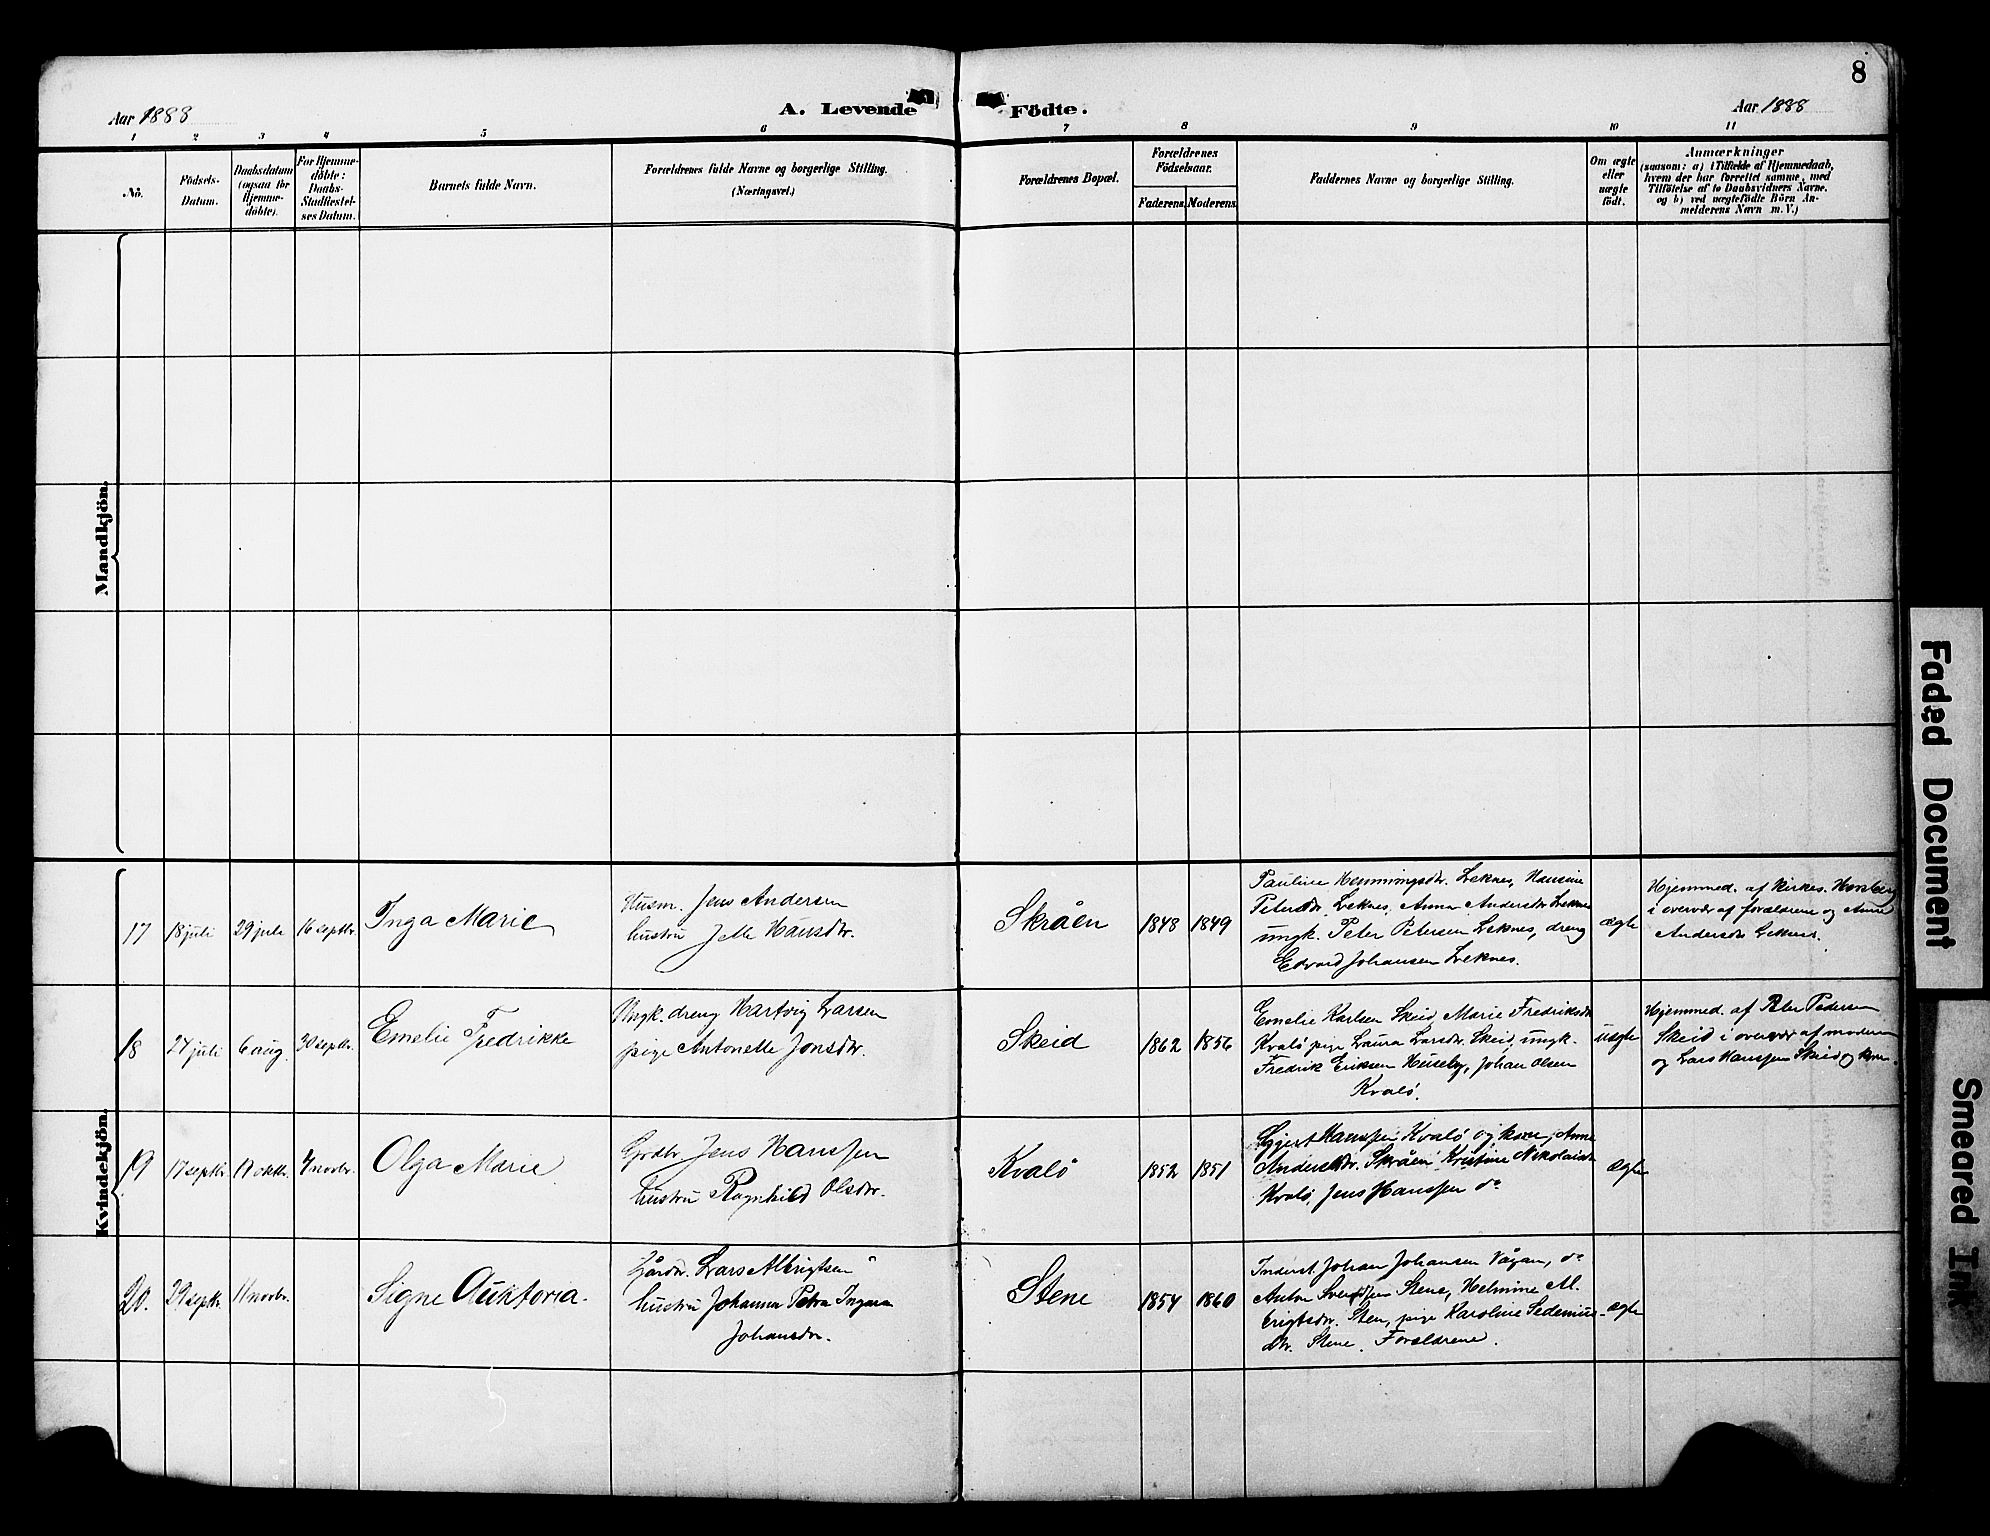 8
Aar 1888
A. Levende Födte.
Aar 1888
1 2 3 4 5 6 7 8 9 10 11
No.
Födsels-
Datum.
Daabsdatum
(ogsaa for
Hjemme-
döbte).
For Hjemme-
döbte:
Daabs-
Stadfæstel-
ses Datum.
Barnets fulde Navn.
Forældrenes fulde Navne og borgerlige Stilling.
(Næringsvei.)
Forældrenes Bopæl.
Forældrenes
Födselsaar.
Faderens. Moderens.
Faddernes Navne og borgerlige Stilling.
Om ægte
eller
uægte
födt.
Anmærkninger
(saasom: a) i Tilfælde af Hjemmedaab,
hvem der har forrettet samme, med
Tilföielse af to Daabsvidners Navne.
og b) ved uægtefödte Börn An-
melderens Navn m. V.)
Mandkjön.
Kvindekjön.
17 18 juli 29 juli 16 septbr. Inga Marie
Husm. Jens Andersen
hustru Hansdtr.
Skråen 1848 1849
Pauline Hemmingsdtr. Leknes, Hansine
Petersdtr. Leknes, Anna Andersdtr Leknes
ungk. Peter Petersen Leknes, dreng
Edvard Johansen Leknes.
ægte
Hjemmed. af kirkes.
i overvær af forældrene og Anne
Andersdtr Leknes.
18 24 juli 6 aug. 30 septbr. Emelie Fredrikke
Ungk. dreng Hartvig Larsen
pige Antonette Jonsdtr.
Skeid 1862 1856
Emelie Karlsen Skeid, Marie Fredriksdtr
Kvalö pige Laura Larsdtr. Skeid, ungk.
Fredrik Eriksen Huseby, Johan Olsen
Kvalö.
uægte
Hjemmed. af Peter Pedersen
Skeid i overvær af moderen
og Lars Hanssen Skeid og kone.
19 17 septbr. 17 oktbr. 4 novbr. Olga Marie
Grdbr. Jens Hanssen
hustru Ragnhild Olsdtr.
Kvalö 1852 1851
Eggert Hanssen Kvalö og kone, Anne
Andersdtr. Skråen, Kristine Nikolaisdtr
Kvalö, Jens Hanssen do
ægte
20. 29 septbr. 11 novbr. Signe Auktoria.
Gårdbr. Lars Albrigtsen
hustru Johanna Petra Ingara
Johansdtr.
Stene 1854 1860
Inderst. Johan Johansen Vågan, do
Anton Svendsen Stene, Helmine M.
Erigtsdtr. Sten, pige Karoline Sedenius-
dtr. Stene. Forældrene.
ægte
Faded Document
Smeared Ink